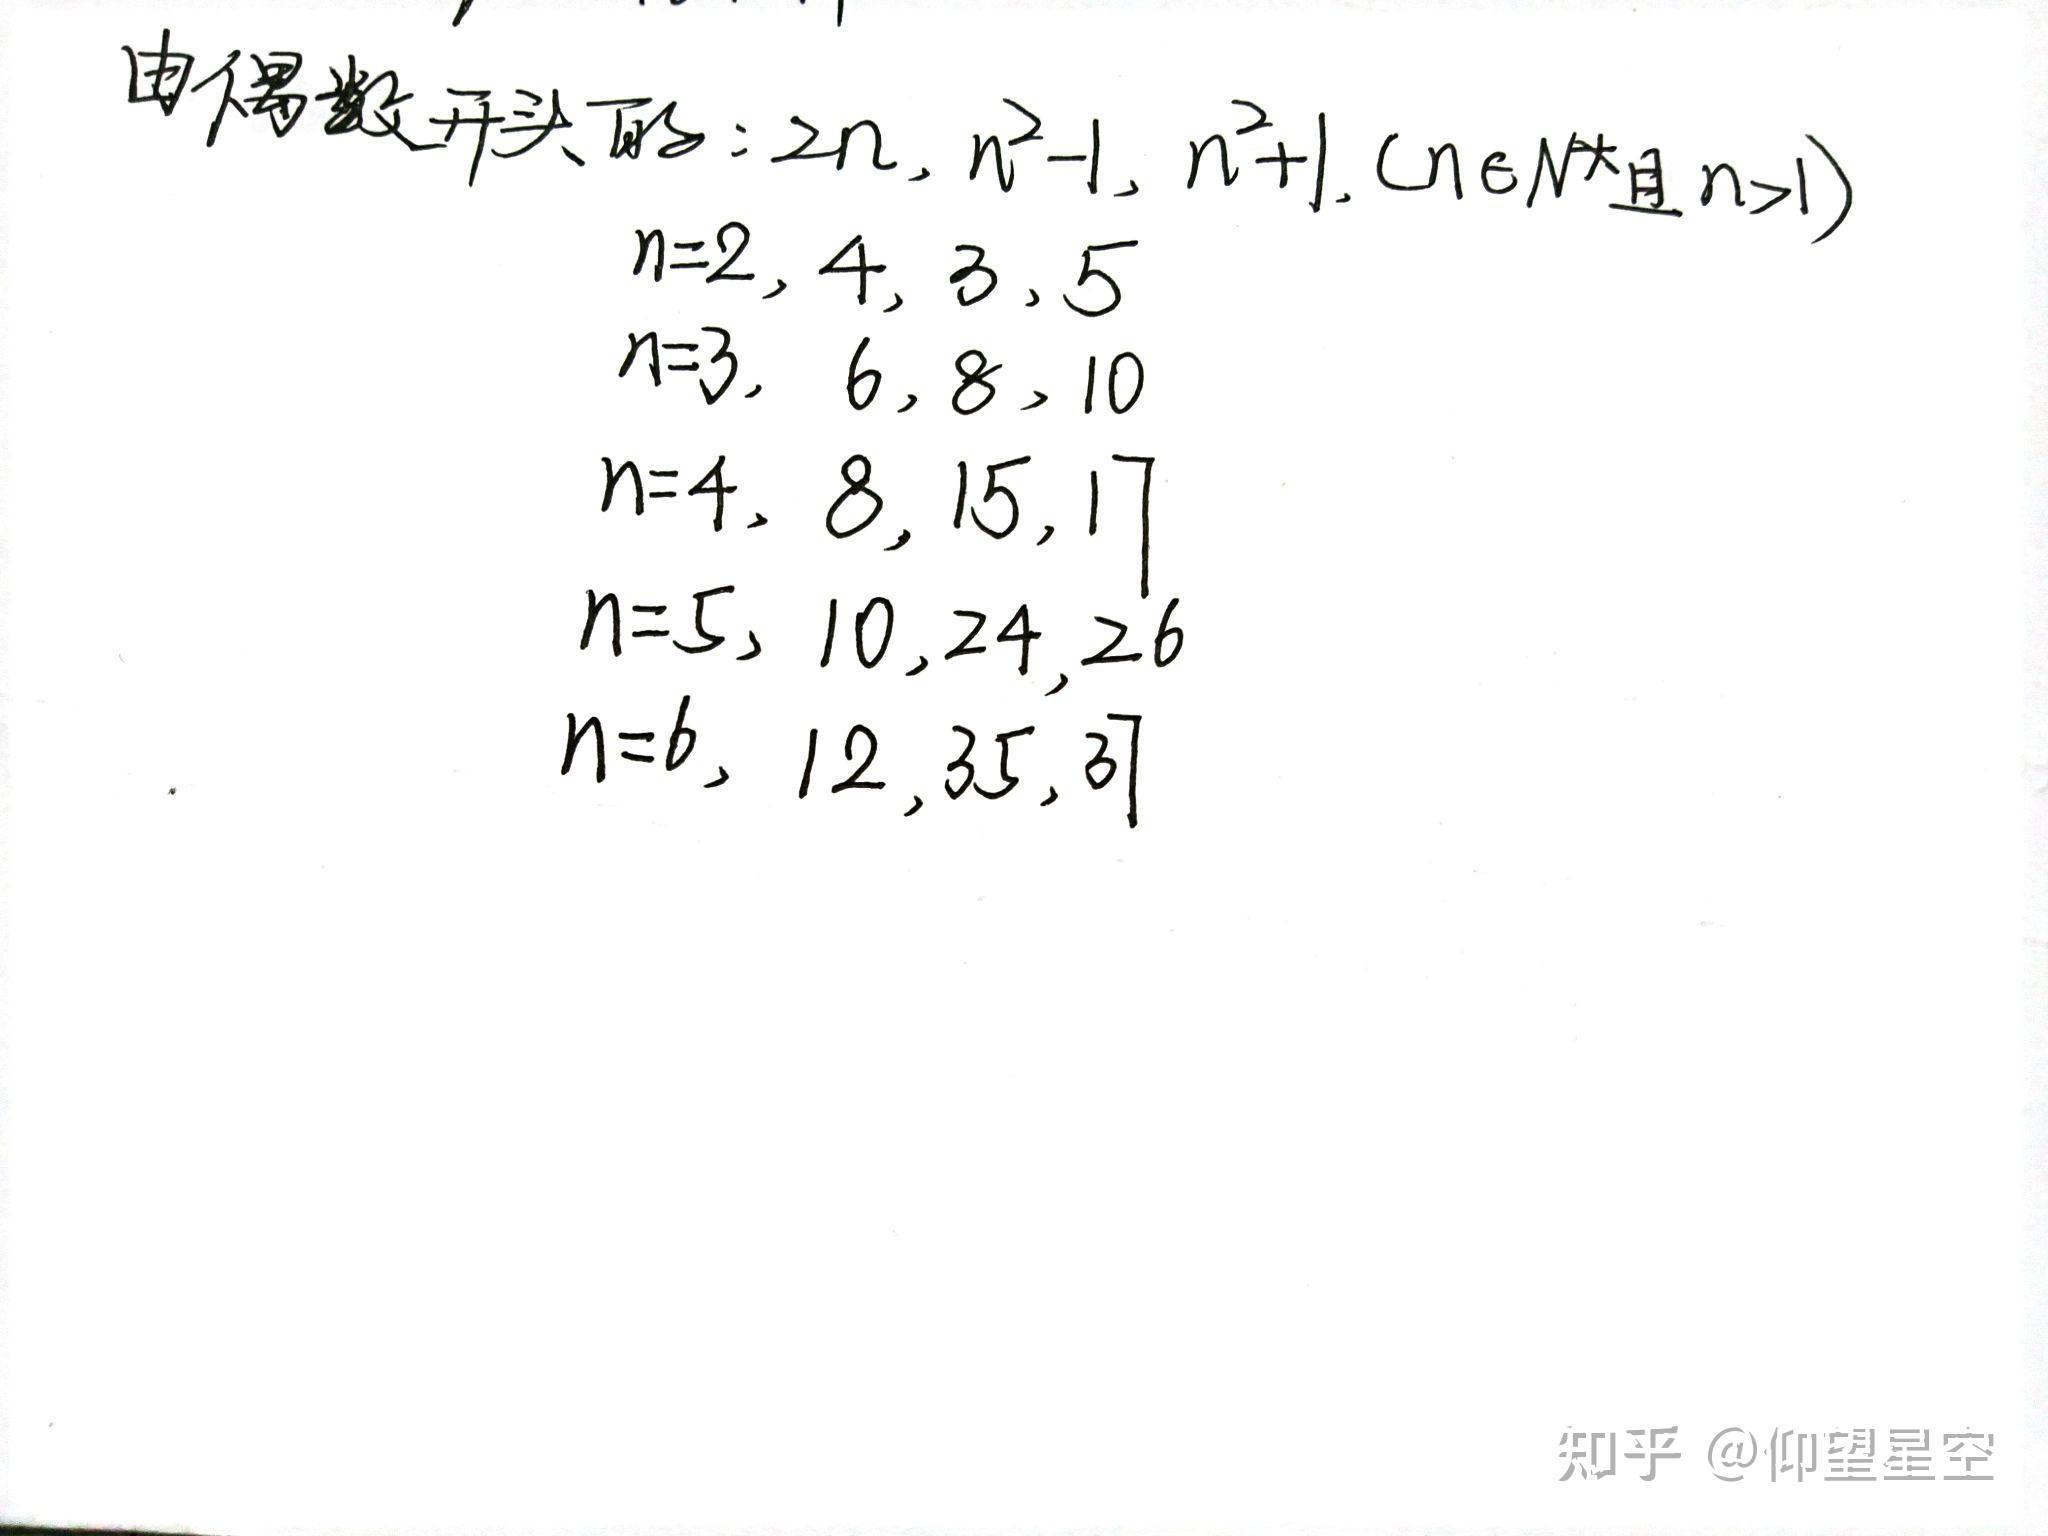 由偶数开头的:2n, n²-1, n²+1. (n∈N*且n>1)
n=2, 4, 3, 5
n=3, 6, 8, 10
n=4, 8, 15, 17
n=5, 10, 24, 26
n=6, 12, 35, 37
知乎 @仰望星空